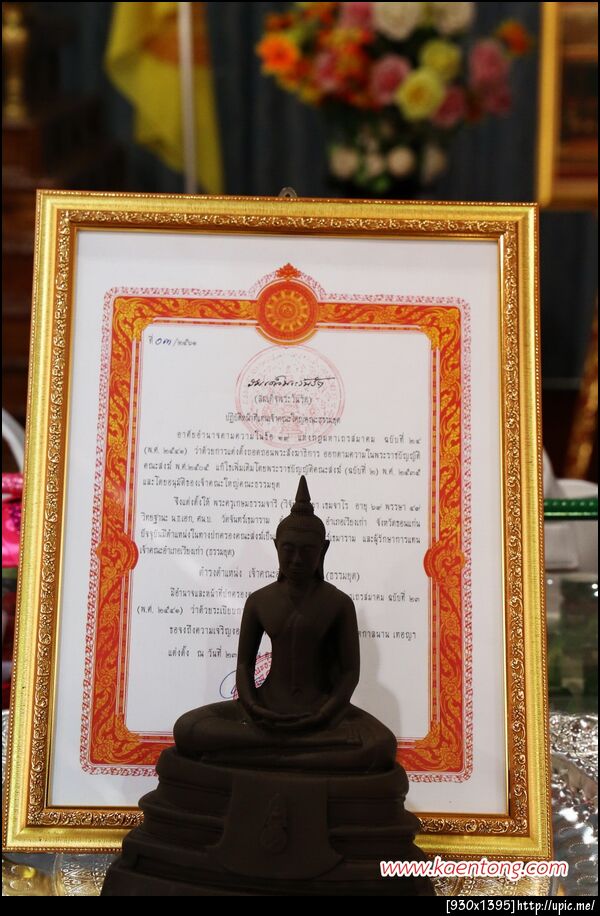 ที่ ๐๓/๒๕๖๑
(สมเด็จพระวันรัต)
ปฏิบัติหน้าที่แทนเจ้าคณะใหญ่คณะธรรมยุต
อาศัยอำนาจตามความในข้อ ๑๙ แห่งกฎมหาเถรสมาคม ฉบับที่ ๒๔
(พ.ศ. ๒๕๔๑) ว่าด้วยการแต่งตั้งถอดถอนพระสังฆาธิการ ออกตามความในพระราชบัญญัติ
คณะสงฆ์ พ.ศ.๒๕๐๕ แก้ไขเพิ่มเติมโดยพระราชบัญญัติคณะสงฆ์ (ฉบับที่ ๒) พ.ศ.๒๕๓๕
และโดยอนุมัติของเจ้าคณะใหญ่คณะธรรมยุต
จึงแต่งตั้งให้ พระครูเกษมธรรมจารี เขมจาโร อายุ ๖๙ พรรษา ๔๙
วิทยฐานะ น.ธ.เอก, ศน.บ. วัดจันทร์เมาราม อำเภอเวียงเก่า จังหวัดขอนแก่น
ปัจจุบันมีตำแหน่งในทางปกครองคณะสงฆ์เป็น และผู้รักษาการแทน
เจ้าคณะอำเภอเวียงเก่า (ธรรมยุต)
ดำรงตำแหน่ง เจ้าคณะ (ธรรมยุต)
มีอำนาจและหน้าที่ปกครอง ฉบับที่ ๒๓
(พ.ศ. ๒๕๔๑) ว่าด้วยระเบียบการ
ขอจงถึงความเจริญ กาลนาน เทอญฯ
แต่งตั้ง ณ วันที่ ๒๓
www.kaentong.com
[930x1395]http://upic.me/